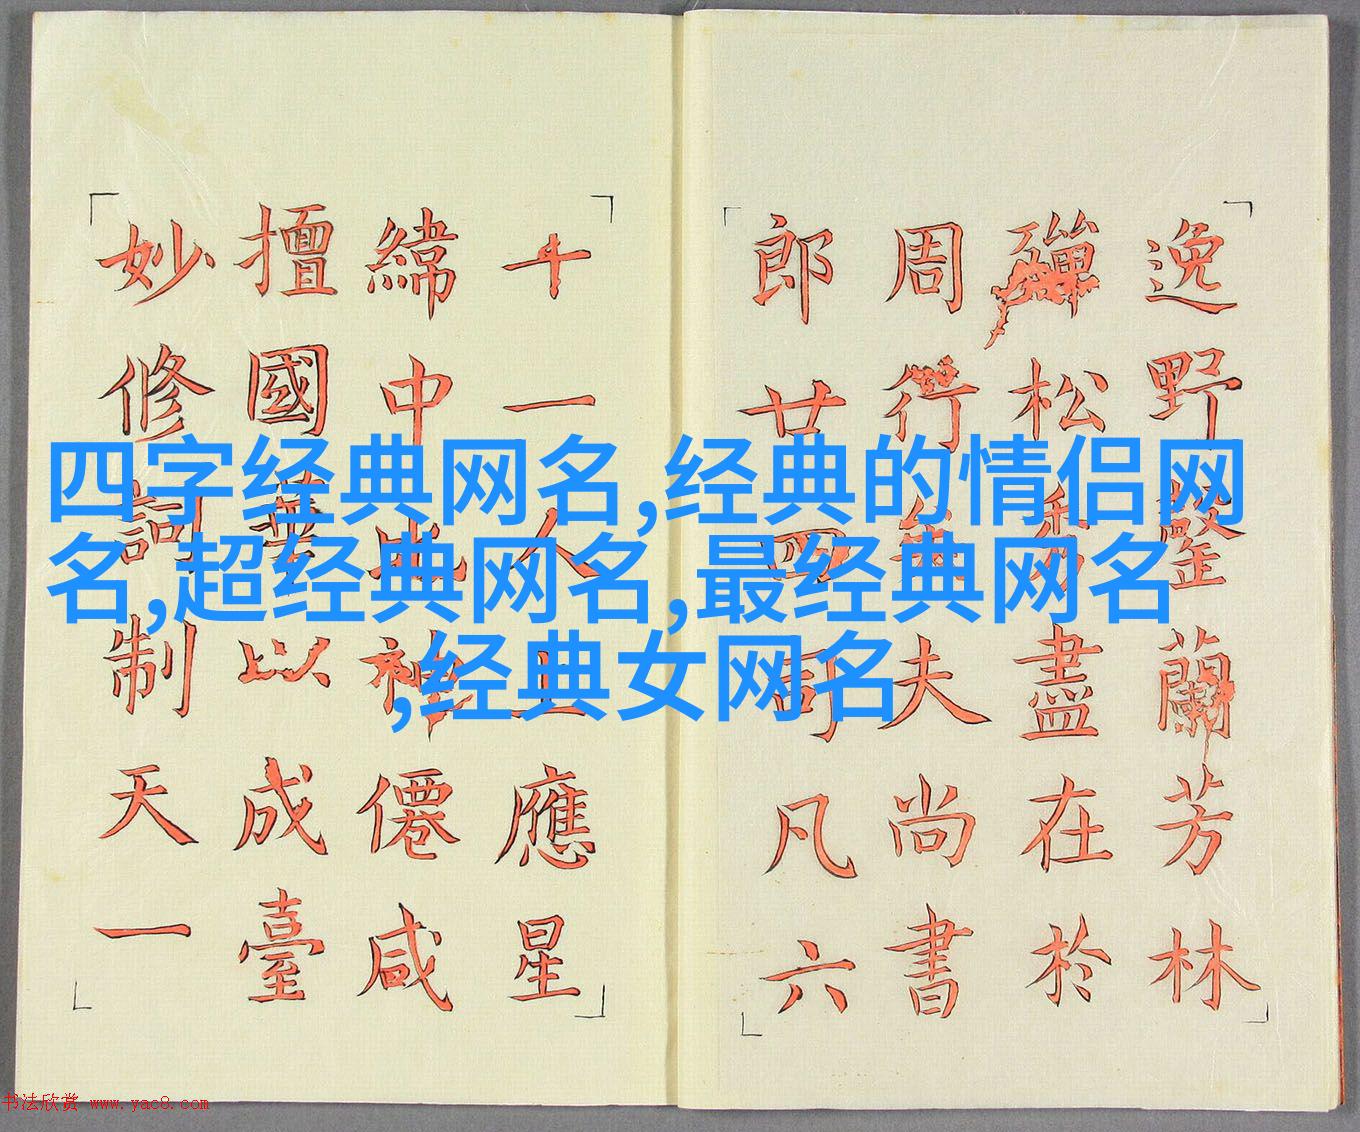 四字经典网名,经典的情侣网
名,超经典网名,最经典网名
,经典女网名
逸野蘭芳林
殫松盡在於
周夫尚書
郎廿四司凡六
十一人上應星
緯中比神僊咸
擅國華以成臺
妙修詞制天一
书法欣赏 www.yac8.com